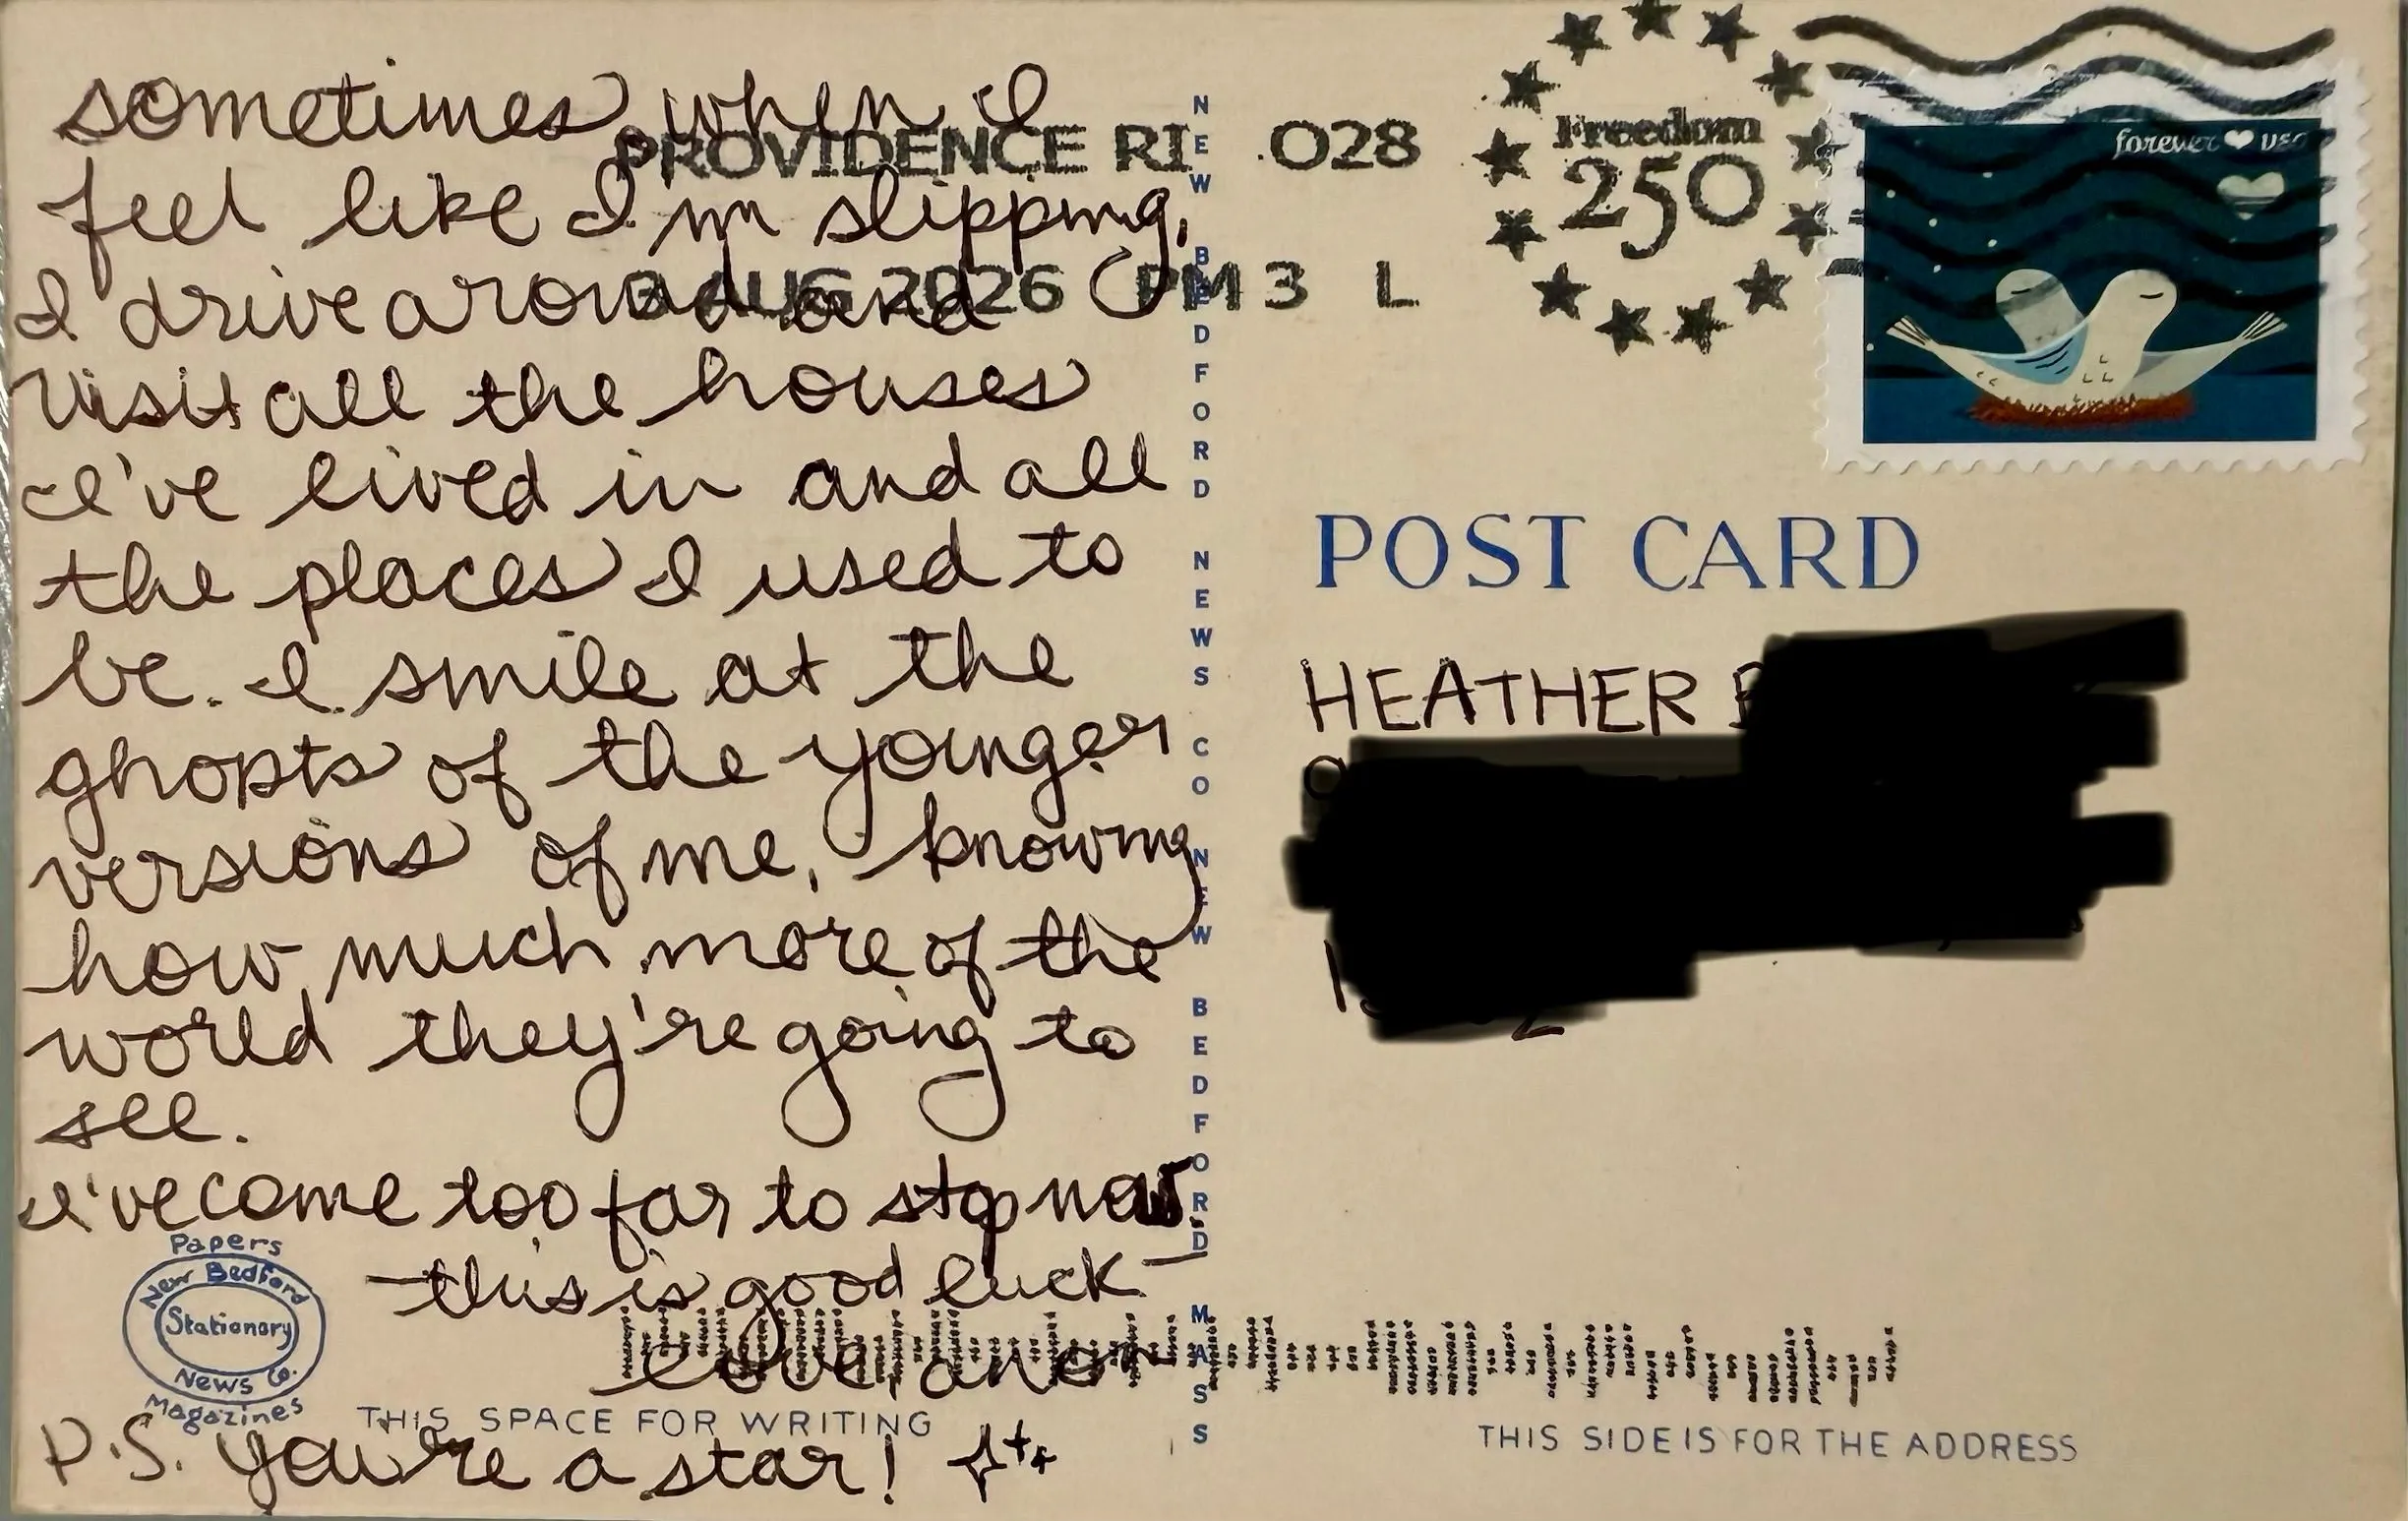 sometimes when I
feel like I'm slipping,
I drive around and
visit all the houses
I've lived in and all
the places I used to
be. I smile at the
ghosts of the younger
versions of me, knowing
how much more of the
world they're going to
see.
I've come too far to stop now.
—this is good luck—
love, anon
P.S. you're a star!
Papers
New Bedford
Stationary
News Co.
Magazines
THIS SPACE FOR WRITING
NEW BEDFORD NEWS CO NEW BEDFORD MASS
PROVIDENCE RI 028
3 AUG 2026 PM 3 L
Freedom
250
forever ♥ USA
POST CARD
HEATHER
THIS SIDE IS FOR THE ADDRESS